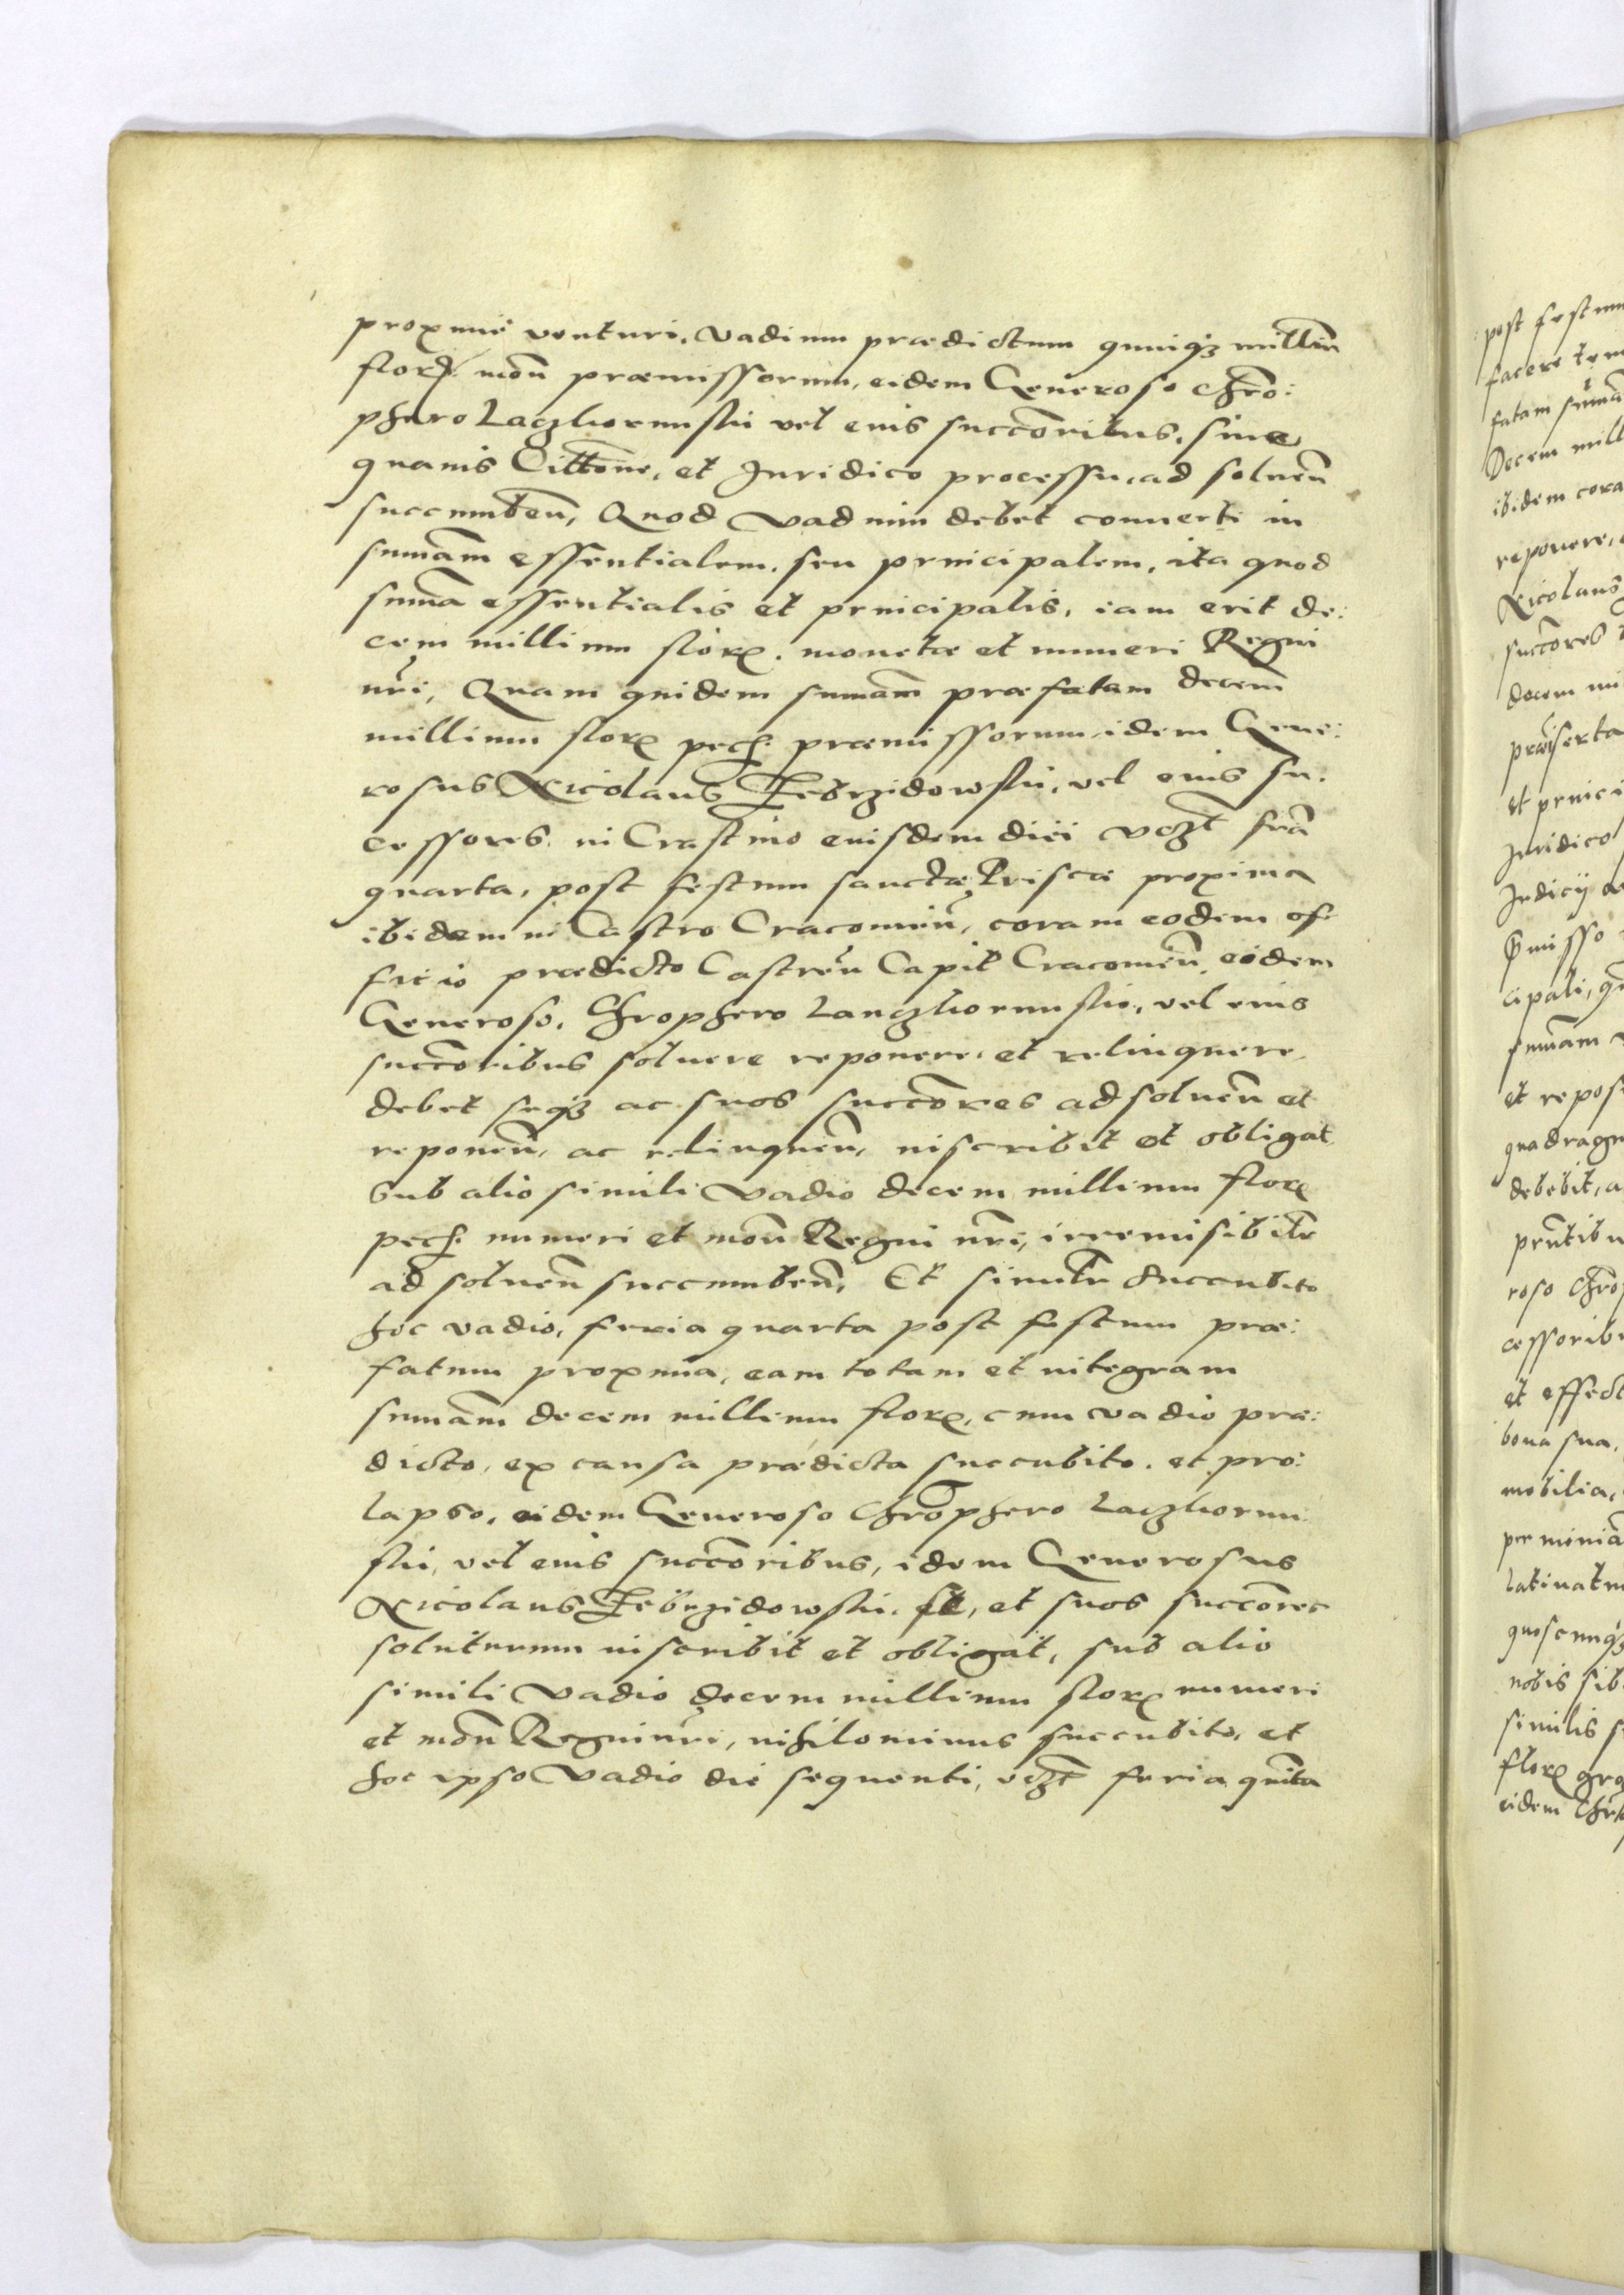 proxime venturi, Vadium prædictum quinq3 milliū
flor: monē præmissorum, eidem Generoso Chrō:
phero Laczhornuskii vel eius succōribus, sine
quauis Cittōne, et Juridico processu, ad soluēn
succumbēn, Quod Vadium debet conuerti in
sumām essentialem, seu principalem, ita quod
suma essentialis et principalis, iam erit de:
cem millium floreꝝ, monetæ et numeri Regni
nr̄i, Quam quidem sumam præfatam decem
millium floreꝝ pech: præmissorum idem Gene:
rosus Nicolaus Zebrzidowskii, vel eius su:
cessores, in Crastino eiusdem diei vcz̄t fr̄ia
quarta, post festum sanctæ Priscæ proxima
ibidem in Castro Cracouiēn, coram eodem of:
ficio prædicto Castreñ Capit̄ Cracouiēn, eidem
Generoso, Chrophero Lanczhornuskio, vel eius
succōribus soluere reponere, et relinquere
debet seq3 ac suos succōres ad soluēn et
reponēn, ac relinquēn, inscribit et obligat
Sub alio simili Vadio decem millium floreꝝ
pech: numeri et monē Regni nr̄i, irremisibilr̄
ad soluēn succumbēn, Et similr̄ succubito
hoc vadio, feria quarta post festum præ:
fatum proxima, eam totam et integram
sumām decem millium floreꝝ, cum vadio præ:
dicto, ex causa prædicta succubito, et pro:
lapso, eidem Generoso Chrōphero Laczhornu
skii, vel eius succōribus, idem Generosus
Nicolaus Zebrzidowskii, se, et suos succōres
soluturum inscribit et obligat, sub alio
simili Vadio decem millium floreꝝ numeri
et monē Regni nr̄i, nihilominus succubito, et
hoc ipso Vadio die sequenti, vcz̄t feria quīta
post festum
facere
fatam sumā
Decem mill
ibidem cora
reponere,
Nicolaus
succōres
decem mi
præiserta
et princi
Juridico
Judicij
pmisso
cipali,
sumam
et repos
quadrag
debebit, a
prn̄tibu
roso Chrō
cessoribu
et effect
bona sua,
mobilia,
per
latinatu
quoscunq3
nobis sib
similis s
floreꝝ
eidem Chr